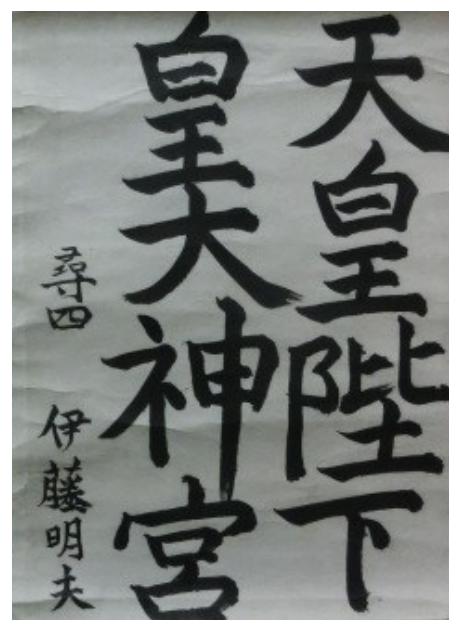 天皇陛下
皇大神宮
尋四 伊藤明夫